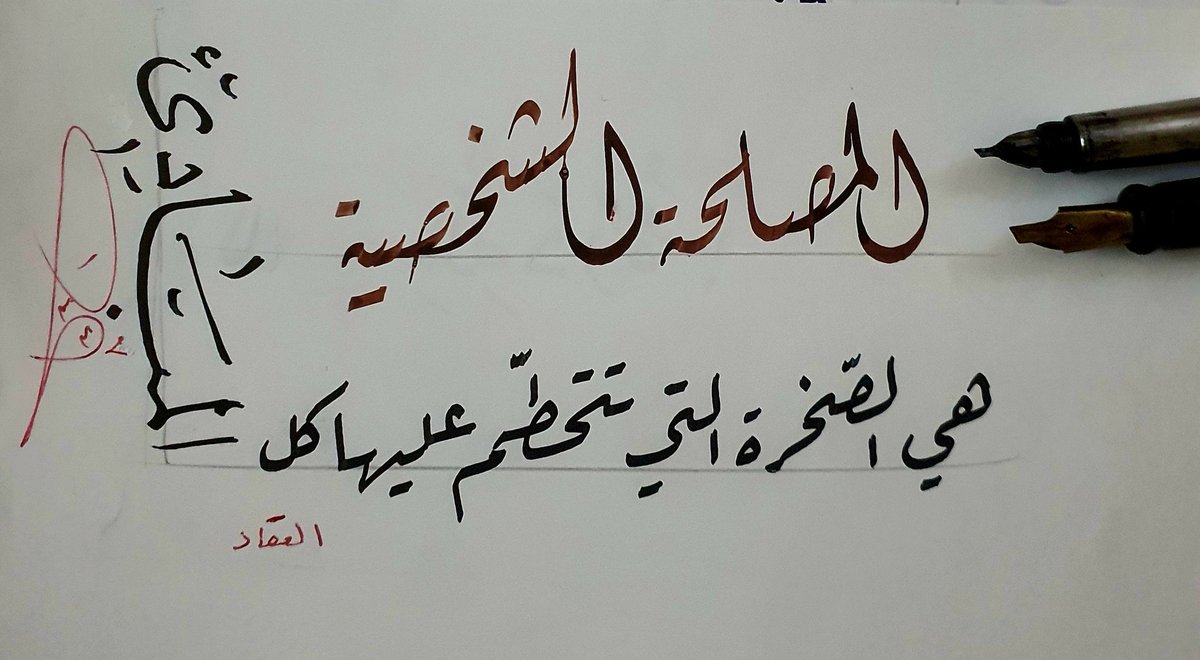 المصلحة الشخصية
هي الصّخرة التي تتحطّم عليها كل
المَبَادِئ
العقاد